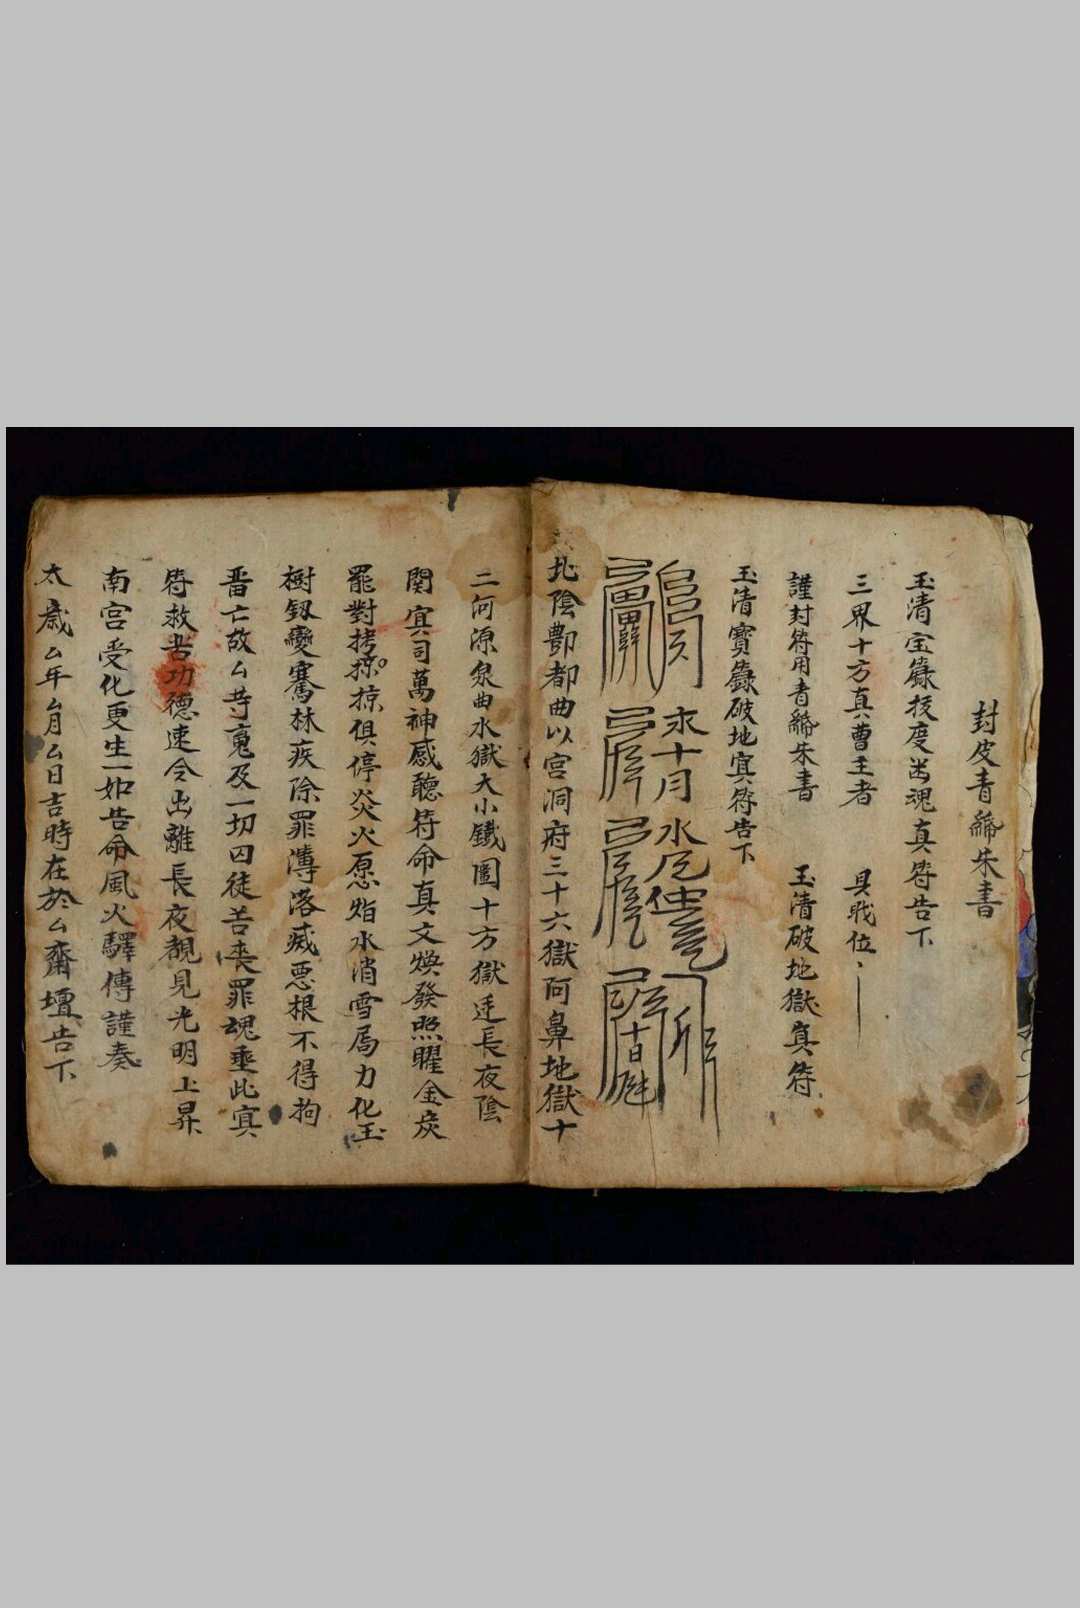 封皮青綈朱書
玉清宝籙拔度幽魂真符告下
三界十方真曹主者 具戢位
謹封符用青綈朱書 玉清破地獄真符
玉清寶籙破地㝠符告下
北陰酆都曲以宮洞府三十六獄阿鼻地獄十
二河源泉曲水獄大小鐵圍十方獄迋長夜陰
関㝠司萬神感聽符命真文煥發照曜金炭
罷對拷掠掠俱停炎火愿㷔水消雪局力化玉
樹釼變騫林疾除罪薄落滅悪根不得拘
畨亡故厶䓁䰟及一切囚徒苦丧罪魂垂此㝠
符救苦功德速令出離長夜覩見光明上昇
南宮受化更生一如告命風火驛傳謹奏
太歲厶年厶月厶日吉時在於厶齋壇告下